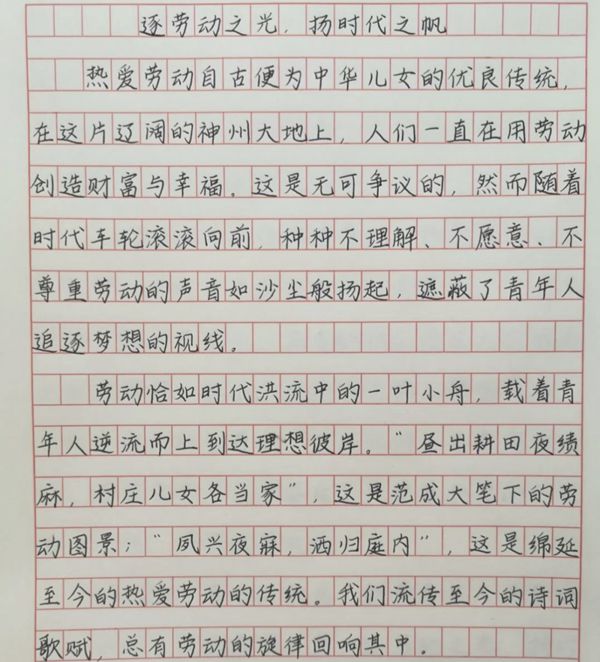 逐劳动之光，扬时代之帆
热爱劳动自古便为中华儿女的优良传统，
在这片辽阔的神州大地上，人们一直在用劳动
创造财富与幸福。这是无可争议的，然而随着
时代车轮滚滚向前，种种不理解、不愿意、不
尊重劳动的声音如沙尘般扬起，遮蔽了青年人
追逐梦想的视线。
劳动恰如时代洪流中的一叶小舟，载着青
年人逆流而上到达理想彼岸。“昼出耕田夜绩
麻，村庄儿女各当家”，这是范成大笔下的劳
动图景；“夙兴夜寐，洒归庭内”，这是绵延
至今的热爱劳动的传统。我们流传至今的诗词
歌赋，总有劳动的旋律回响其中。